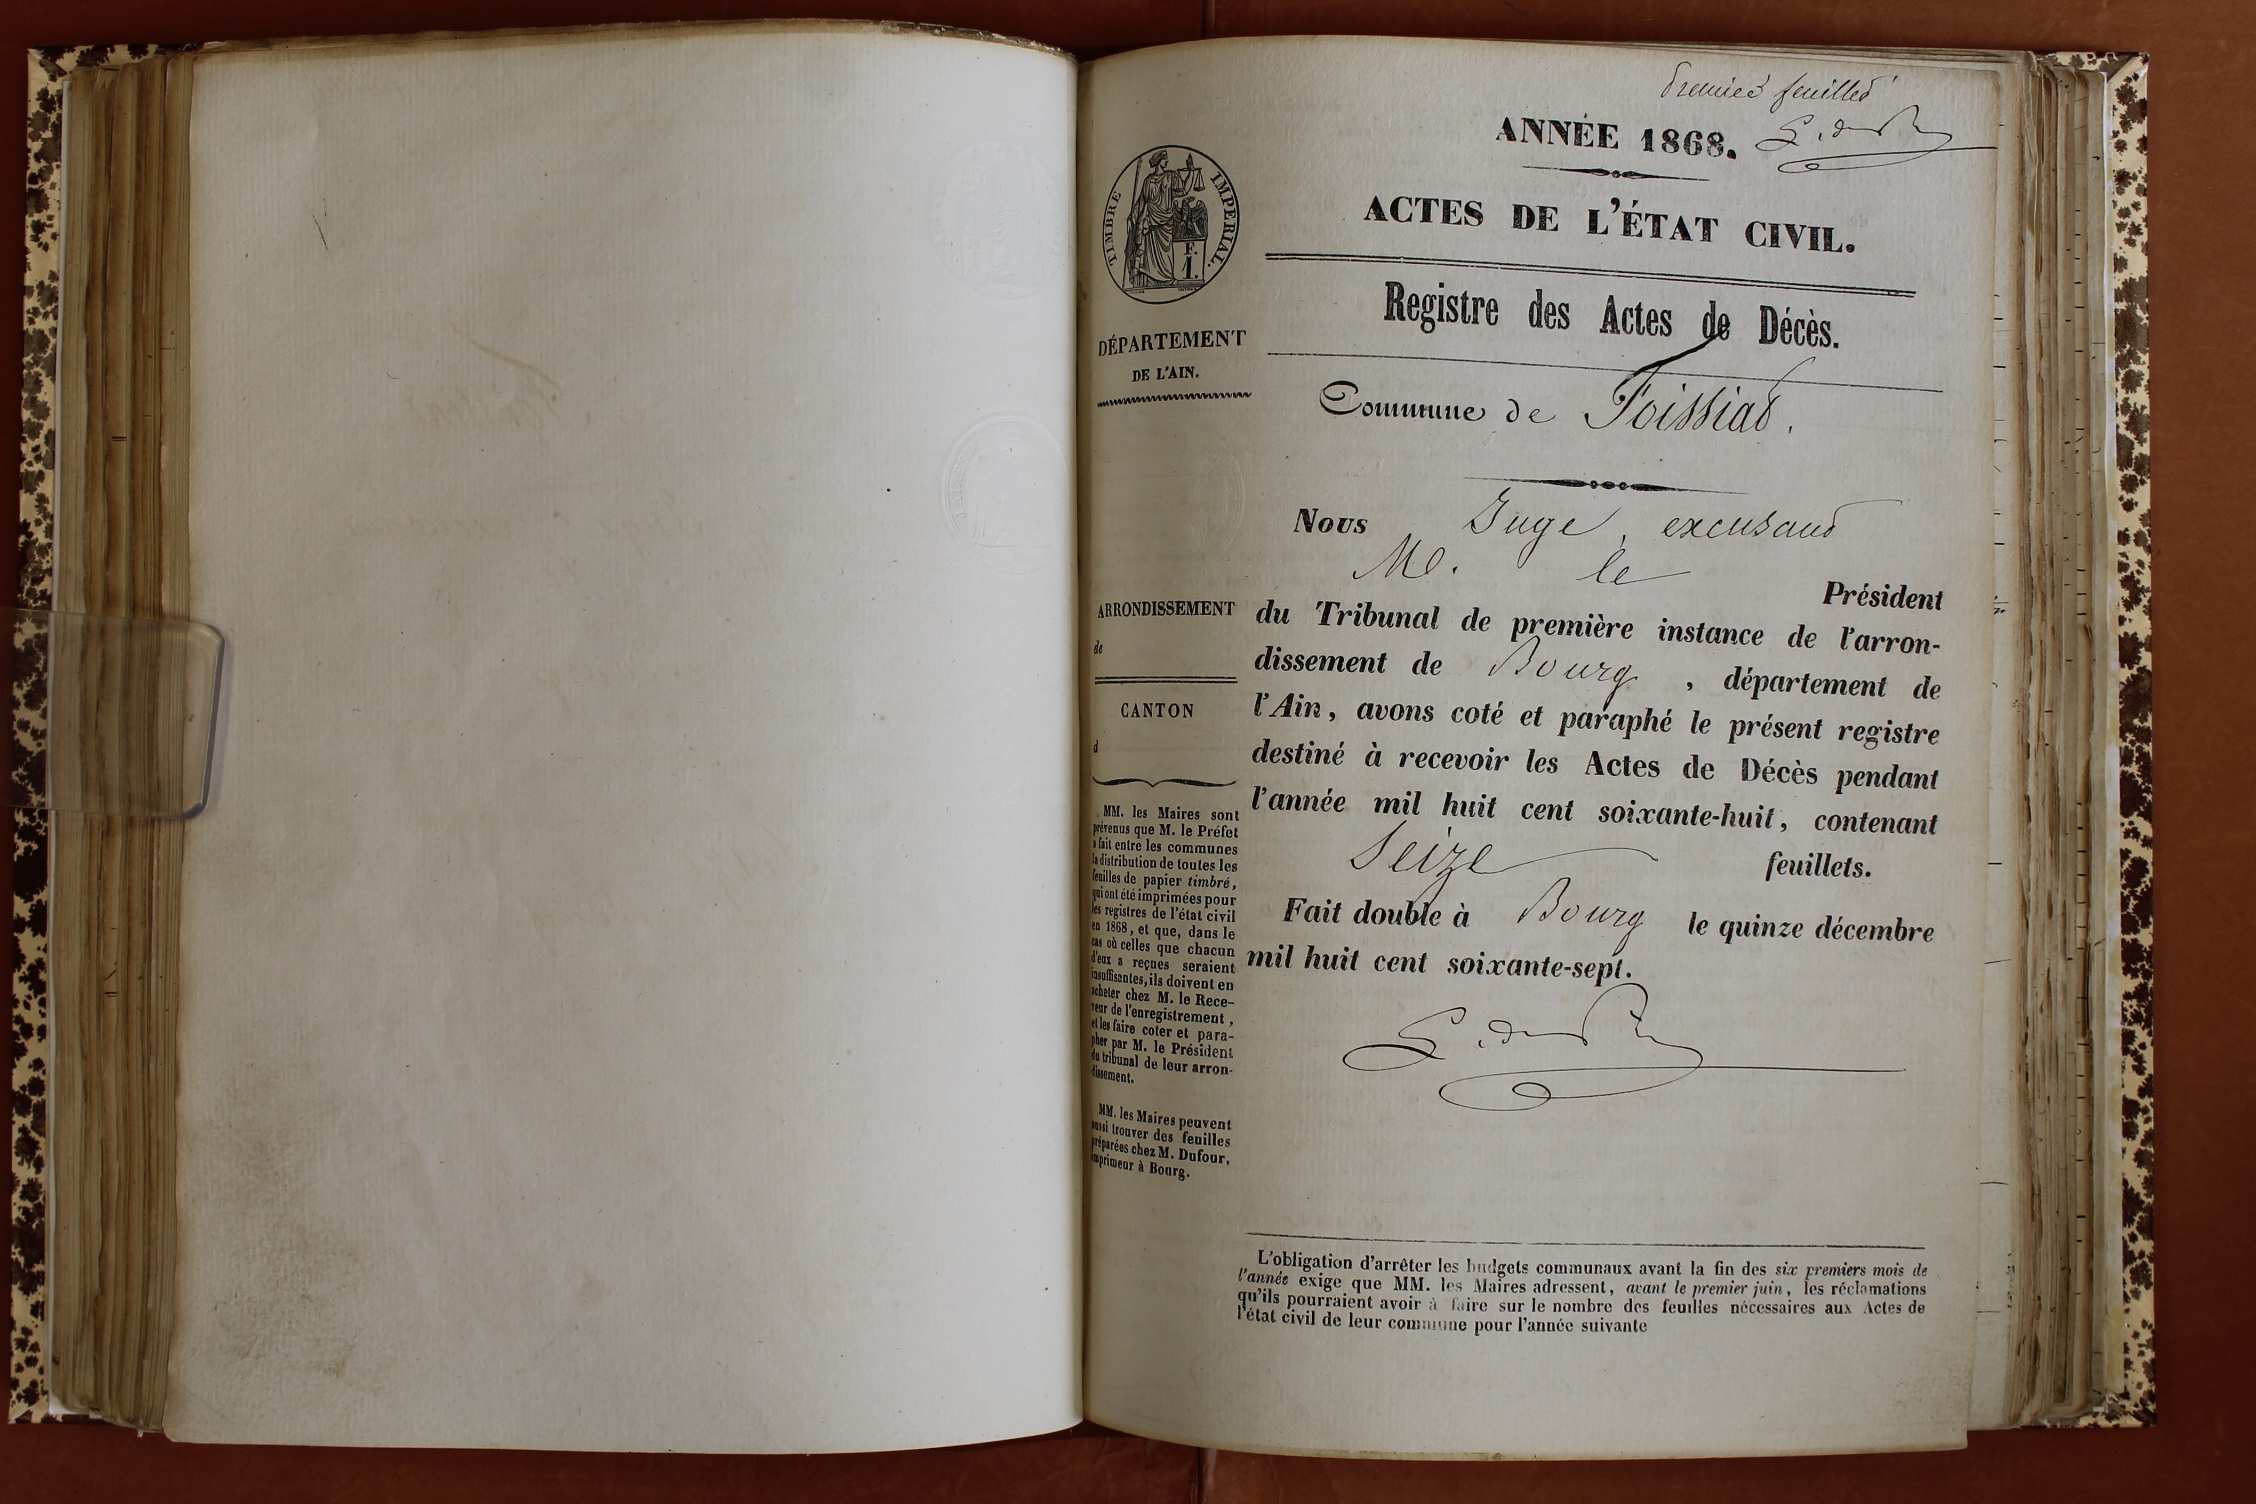 Premier feuillet
ANNÉE 1868.
ACTES DE L'ÉTAT CIVIL.
TIMBRE IMPERIAL.
F.
1.
Registre des Actes de Décès.
DÉPARTEMENT
DE L'AIN.
Commune de Foissiat.
Nous Juge, excusant
M. le
Président
du Tribunal de première instance de l'arron-
dissement de Bourg, département de
l'Ain, avons coté et paraphé le présent registre
destiné à recevoir les Actes de Décès pendant
l'année mil huit cent soixante-huit, contenant
Seize feuillets.
Fait double à Bourg le quinze décembre
mil huit cent soixante-sept.
ARRONDISSEMENT
de
CANTON
d
MM. les Maires sont
prévenus que M. le Préfet
a fait entre les communes
la distribution de toutes les
feuilles de papier timbré,
qui ont été imprimées pour
les registres de l'état civil
en 1868, et que, dans le
cas où celles que chacun
d'eux a reçues seraient
insuffisantes, ils doivent en
acheter chez M. le Rece-
veur de l'enregistrement,
et les faire coter et para-
pher par M. le Président
du tribunal de leur arron-
dissement.
MM. les Maires peuvent
aussi trouver des feuilles
préparées chez M. Dufour,
imprimeur à Bourg.
L'obligation d'arrêter les budgets communaux avant la fin des six premiers mois de
l'année exige que MM. les Maires adressent, avant le premier juin, les réclamations
qu'ils pourraient avoir à faire sur le nombre des feuilles nécessaires aux Actes de
l'état civil de leur commune pour l'année suivante